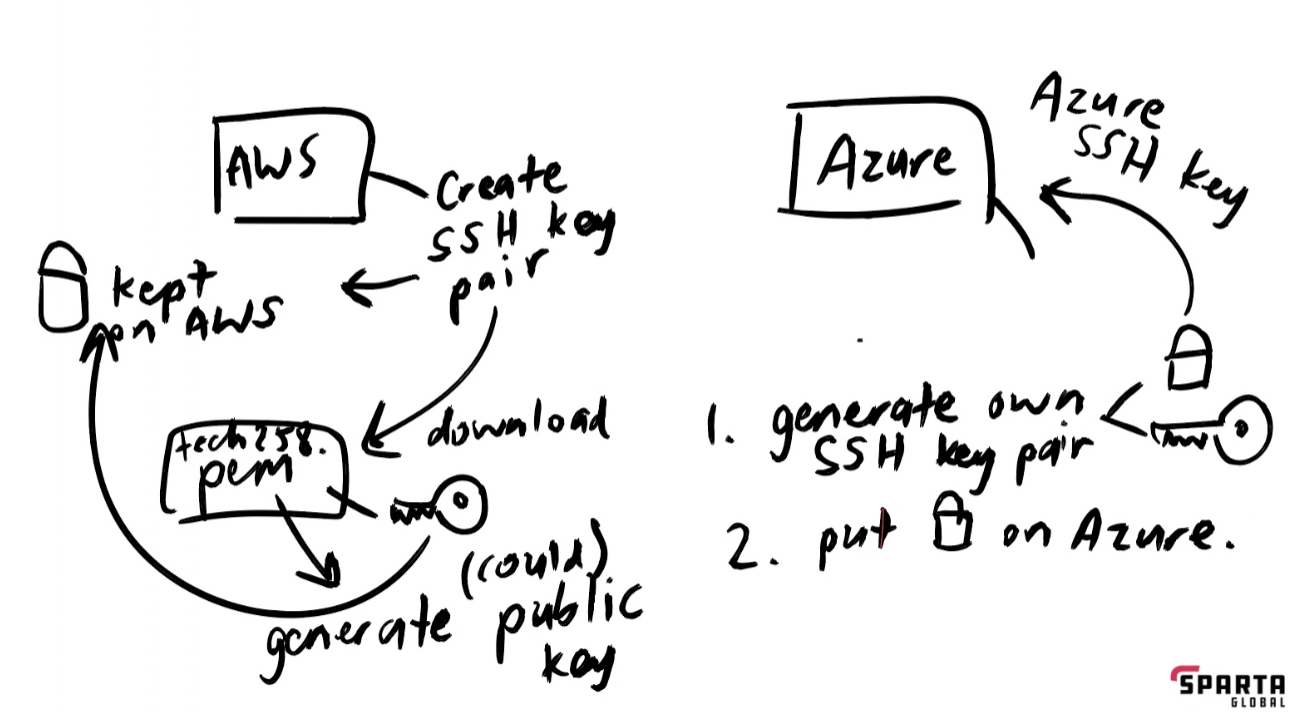 AWS
Create
SSH key
pair
kept
on AWS
download
tech258.
pem
(could)
generate public
key
Azure
Azure
SSH key
1. generate own
SSH key pair
2. put on Azure.
SPARTA
GLOBAL